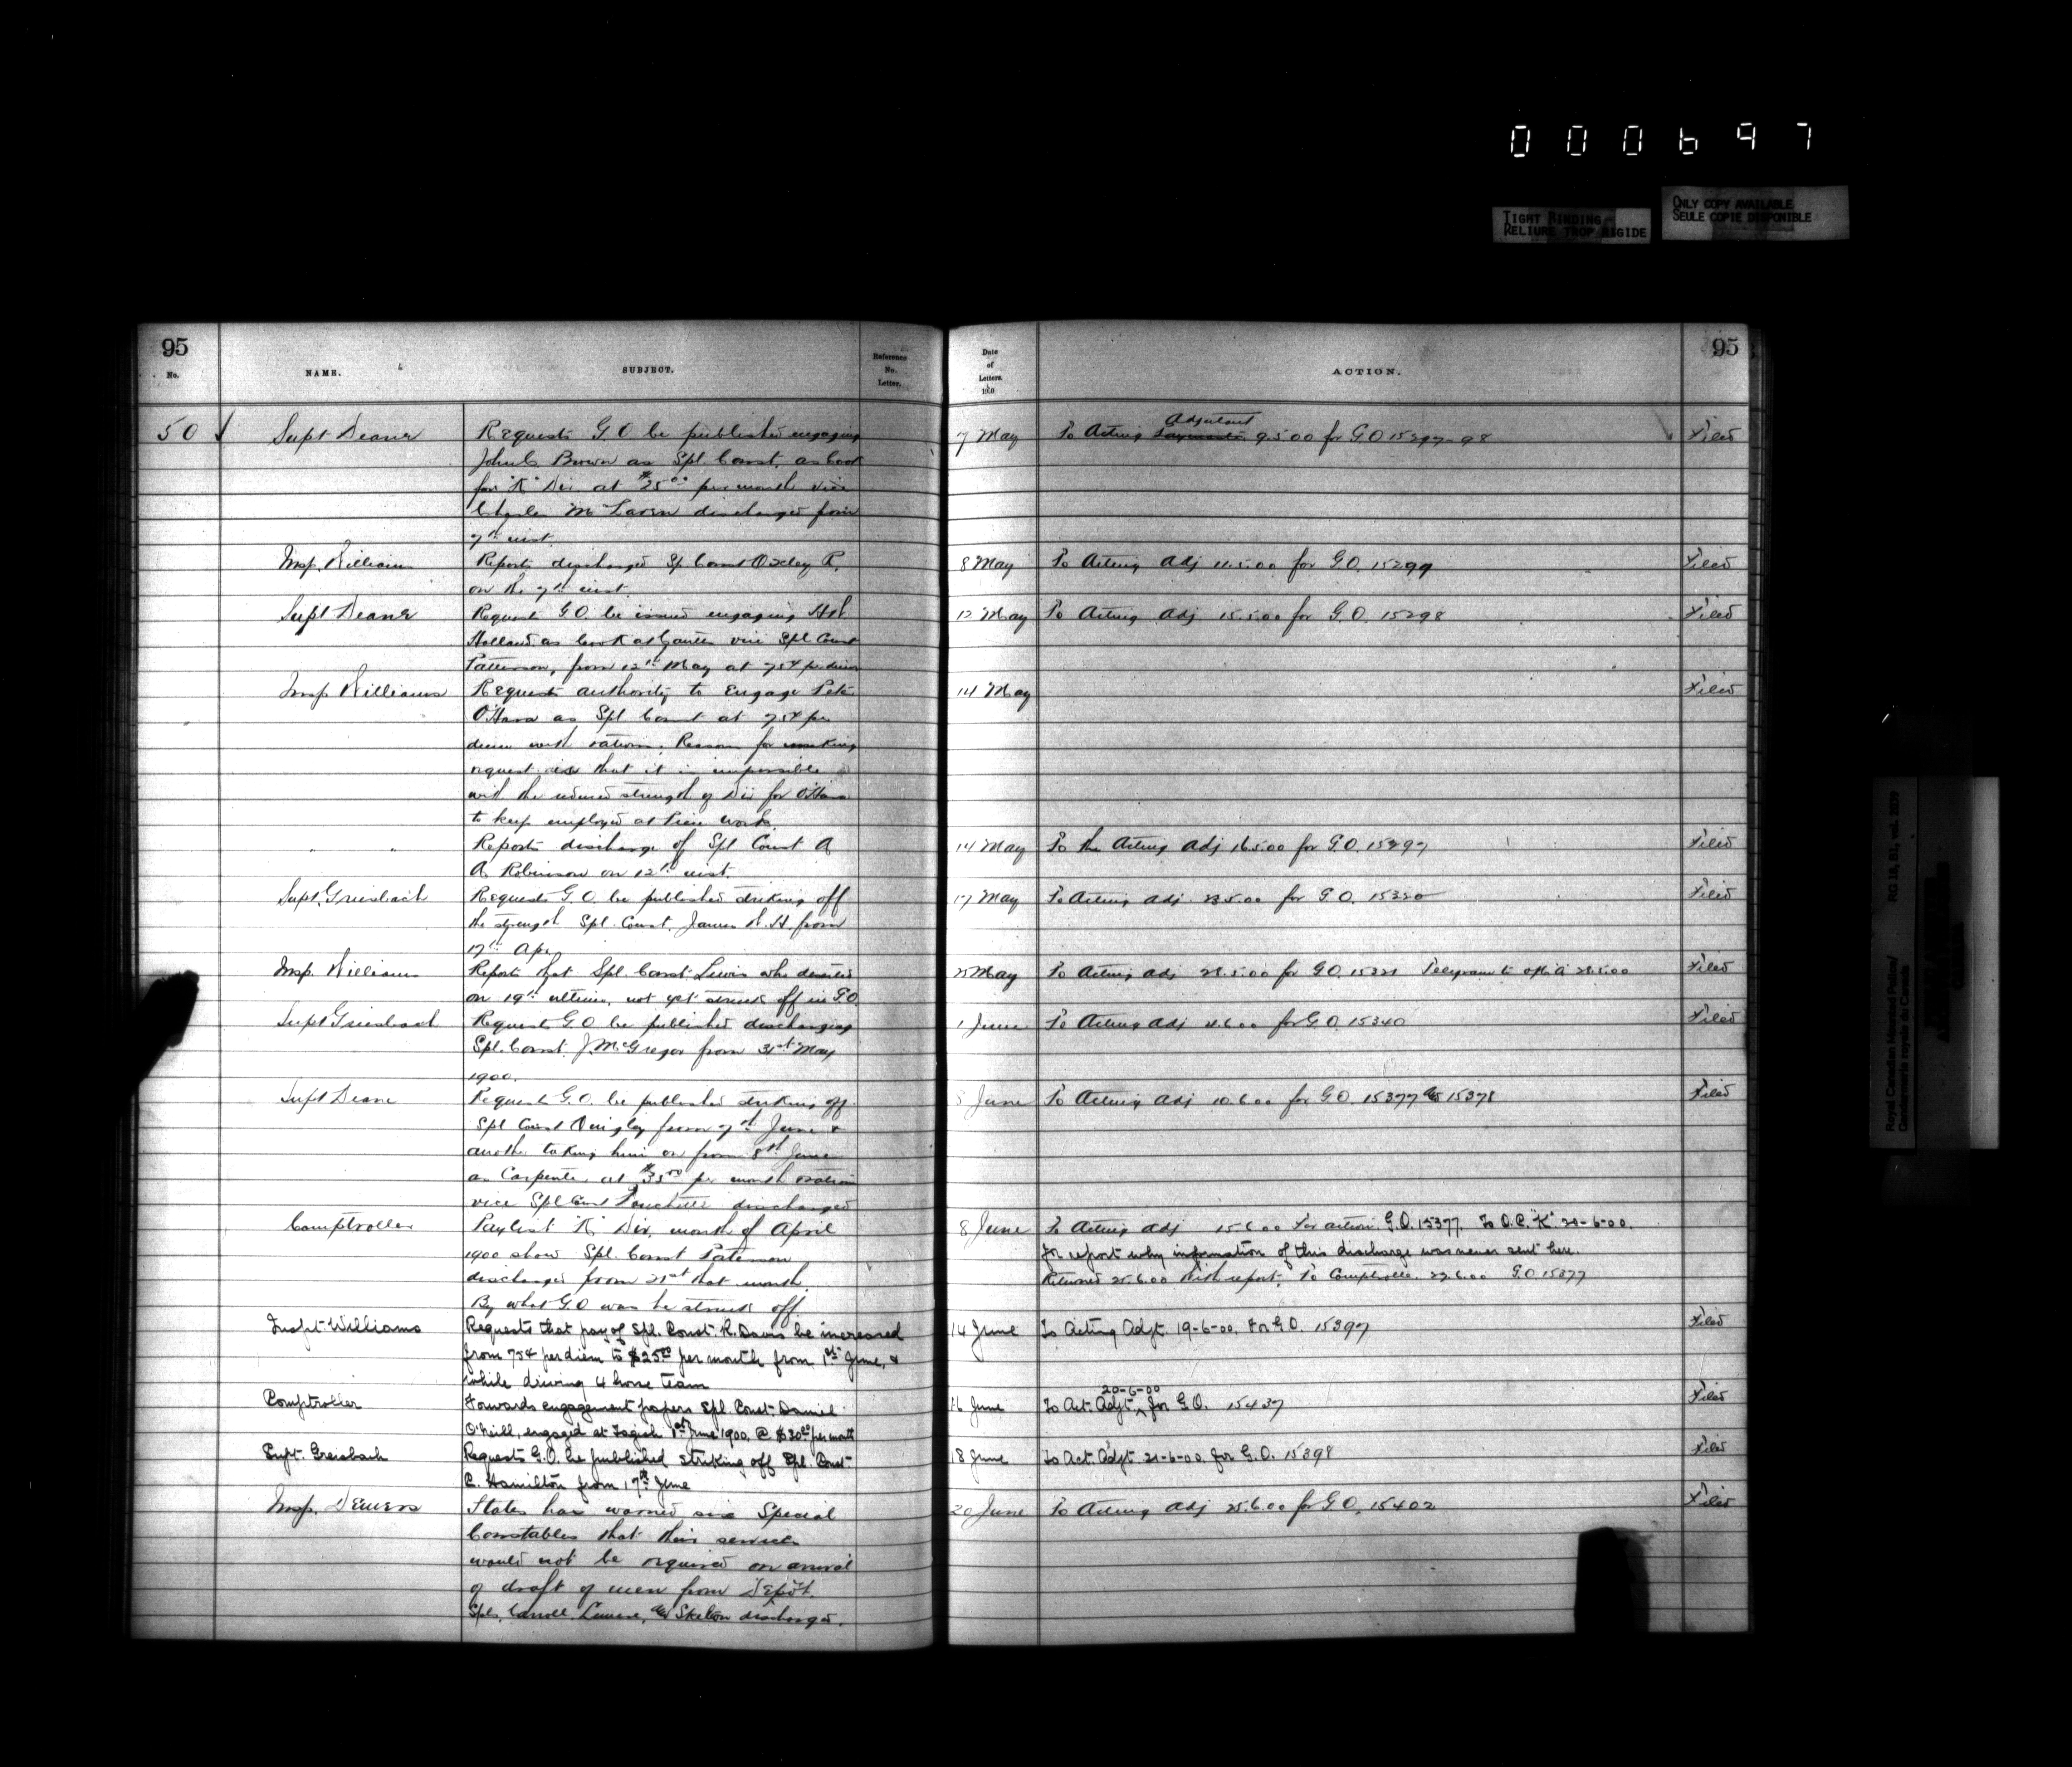 000697
TIGHT BINDING
RELIURE TROP RIGIDE
ONLY COPY AVAILABLE
SEULE COPIE DISPONIBLE
95
No.
NAME.
SUBJECT.
Reference
No.
Letter.
50 Supt Deane
Requests G.O be published engaging
John C Brown as Spl. Const. as Cook
for "K" Div at $25.00 per month vice
Charles McLaren discharged from
7th inst.
Insp. Williams
Reports discharged Sp Const Oxley R.
on the 7th inst.
Supt Deane
Request G.O. be issued engaging
Holland as Cook at vice Spl Const
Patterson, from 12th May at 75¢ per diem
Insp Williams
Requests authority to Engage Pete
O'Hara as Spl Const at 75¢ per
diem with rations. Reason for making
request is that it is impossible
with the reduced strength of Div for O'Hara
to keep employed at Piece work.
" "
Reports discharge of Spl Const A
A. Robinson on 12th inst.
Supt. Griesbach
Requests G.O. be published striking off
the strength Spl. Const. James from
17th Apr
Insp. Williams
Reports that Spl. Const. Lewis who deserted
on 19th ultimo, not yet struck off in G.O.
Supt Griesbach
Request G.O be published discharging
Spl. Const. J. McGregor from 31st May
1900.
Supt Deane
Request G.O. be published striking off
Spl Const Quigley from 7th June &
another taking him on from 8th June
as Carpenter at $35.00 per month rations
vice Spl Const discharged
Comptroller
Paylist "K" Div. month of April
1900 show Spl. Const Paterson
discharged from 21st that month.
By what G.O was he struck off.
Inspt. Williams
Requests that pay of Spl. Const. R. Davis be increased
from 75¢ per diem to $25.00 per month from 1st June, &
while driving 4 horse team
Comptroller
Forwards engagement papers Spl. Const. Daniel
O'Neill, engaged at Tagish 1st June 1900. @ $30.00 per month
Supt. Greisbach
Requests G.O. be published striking off Spl. Const.
C. Hamilton from 17th June
Insp. Demers
States has warned six Special
Constables that their services
would not be required on arrival
of draft of men from Depôt.
Spls. Carroll, & Skelton discharged.
95
Date
of
Letters.
ACTION.
7 May To Acting Adjutant 9.5.00 for G.O 15297-98 Filed
8 May To Acting Adj 11.5.00 for G.O. 15299 Filed
12 May To Acting Adj 15.5.00 for G.O. 15298 Filed
14 May Filed
14 May To the Acting Adj 16.5.00 for G.O. 15297 Filed
17 May To Acting Adj. 23.5.00 for G.O. 15320 Filed
25 May To Acting Adj 28.5.00 for G.O. 15321 Telegram to 28.5.00 Filed
1 June To Acting Adj 4.6.00 for G.O. 15340 Filed
8 June To Acting Adj 10.6.00 for G.O. 15377 & 15378 Filed
8 June To Acting Adj 15.6.00 for action G.O. 15377. To O.C. "K" 20-6-00.
for report why information of this discharge was never sent here.
Returned 25.6.00 with report. To Comptroller. 27.6.00 G.O 15377
14 June To Acting Adjt. 19-6-00. for G.O. 15397 Filed
16 June To Act. Adjt. 20-6-00 for G.O. 15437 Filed
18 June To Act. Adjt. 21-6-00 for G.O. 15398 Filed
20 June To Acting Adj 25.6.00 for G.O. 15402 Filed
Royal Canadian Mounted Police/
Gendarmerie royale du Canada
RG 18, B1, vol. 2039